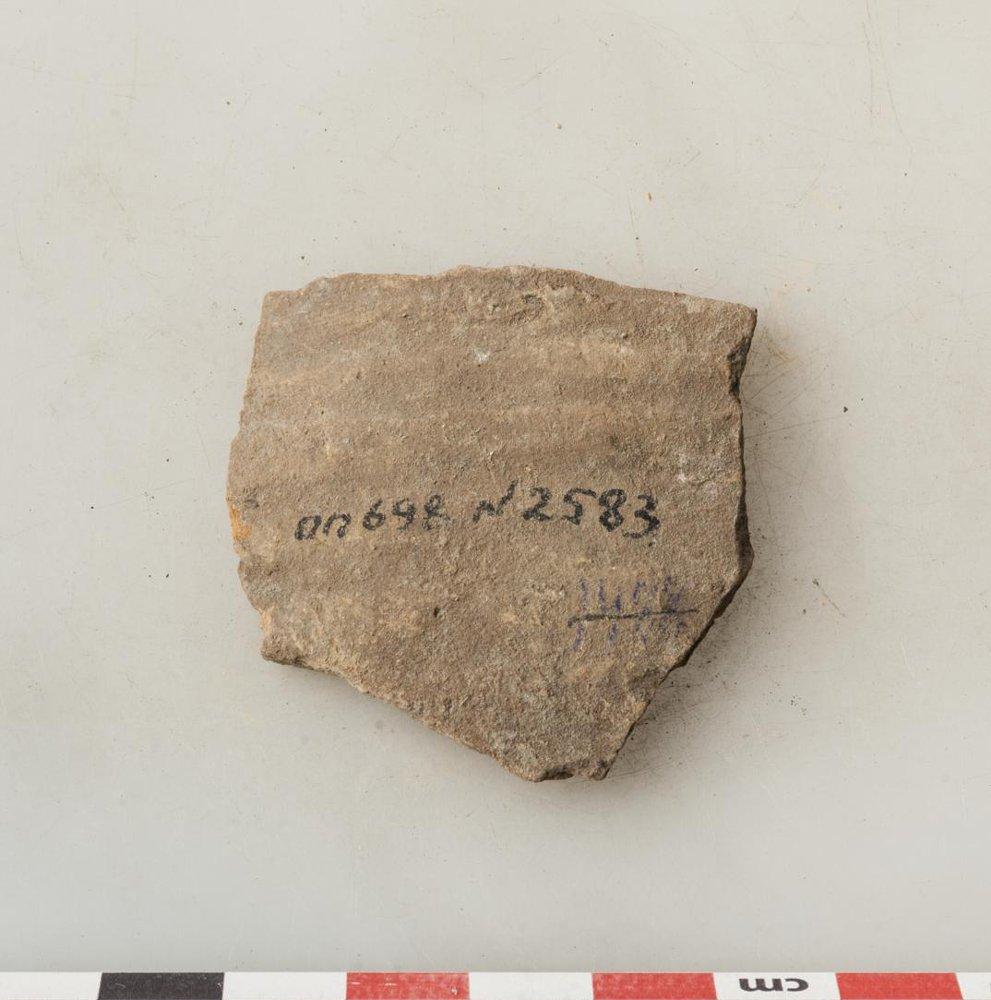 оп698 N2583
cm